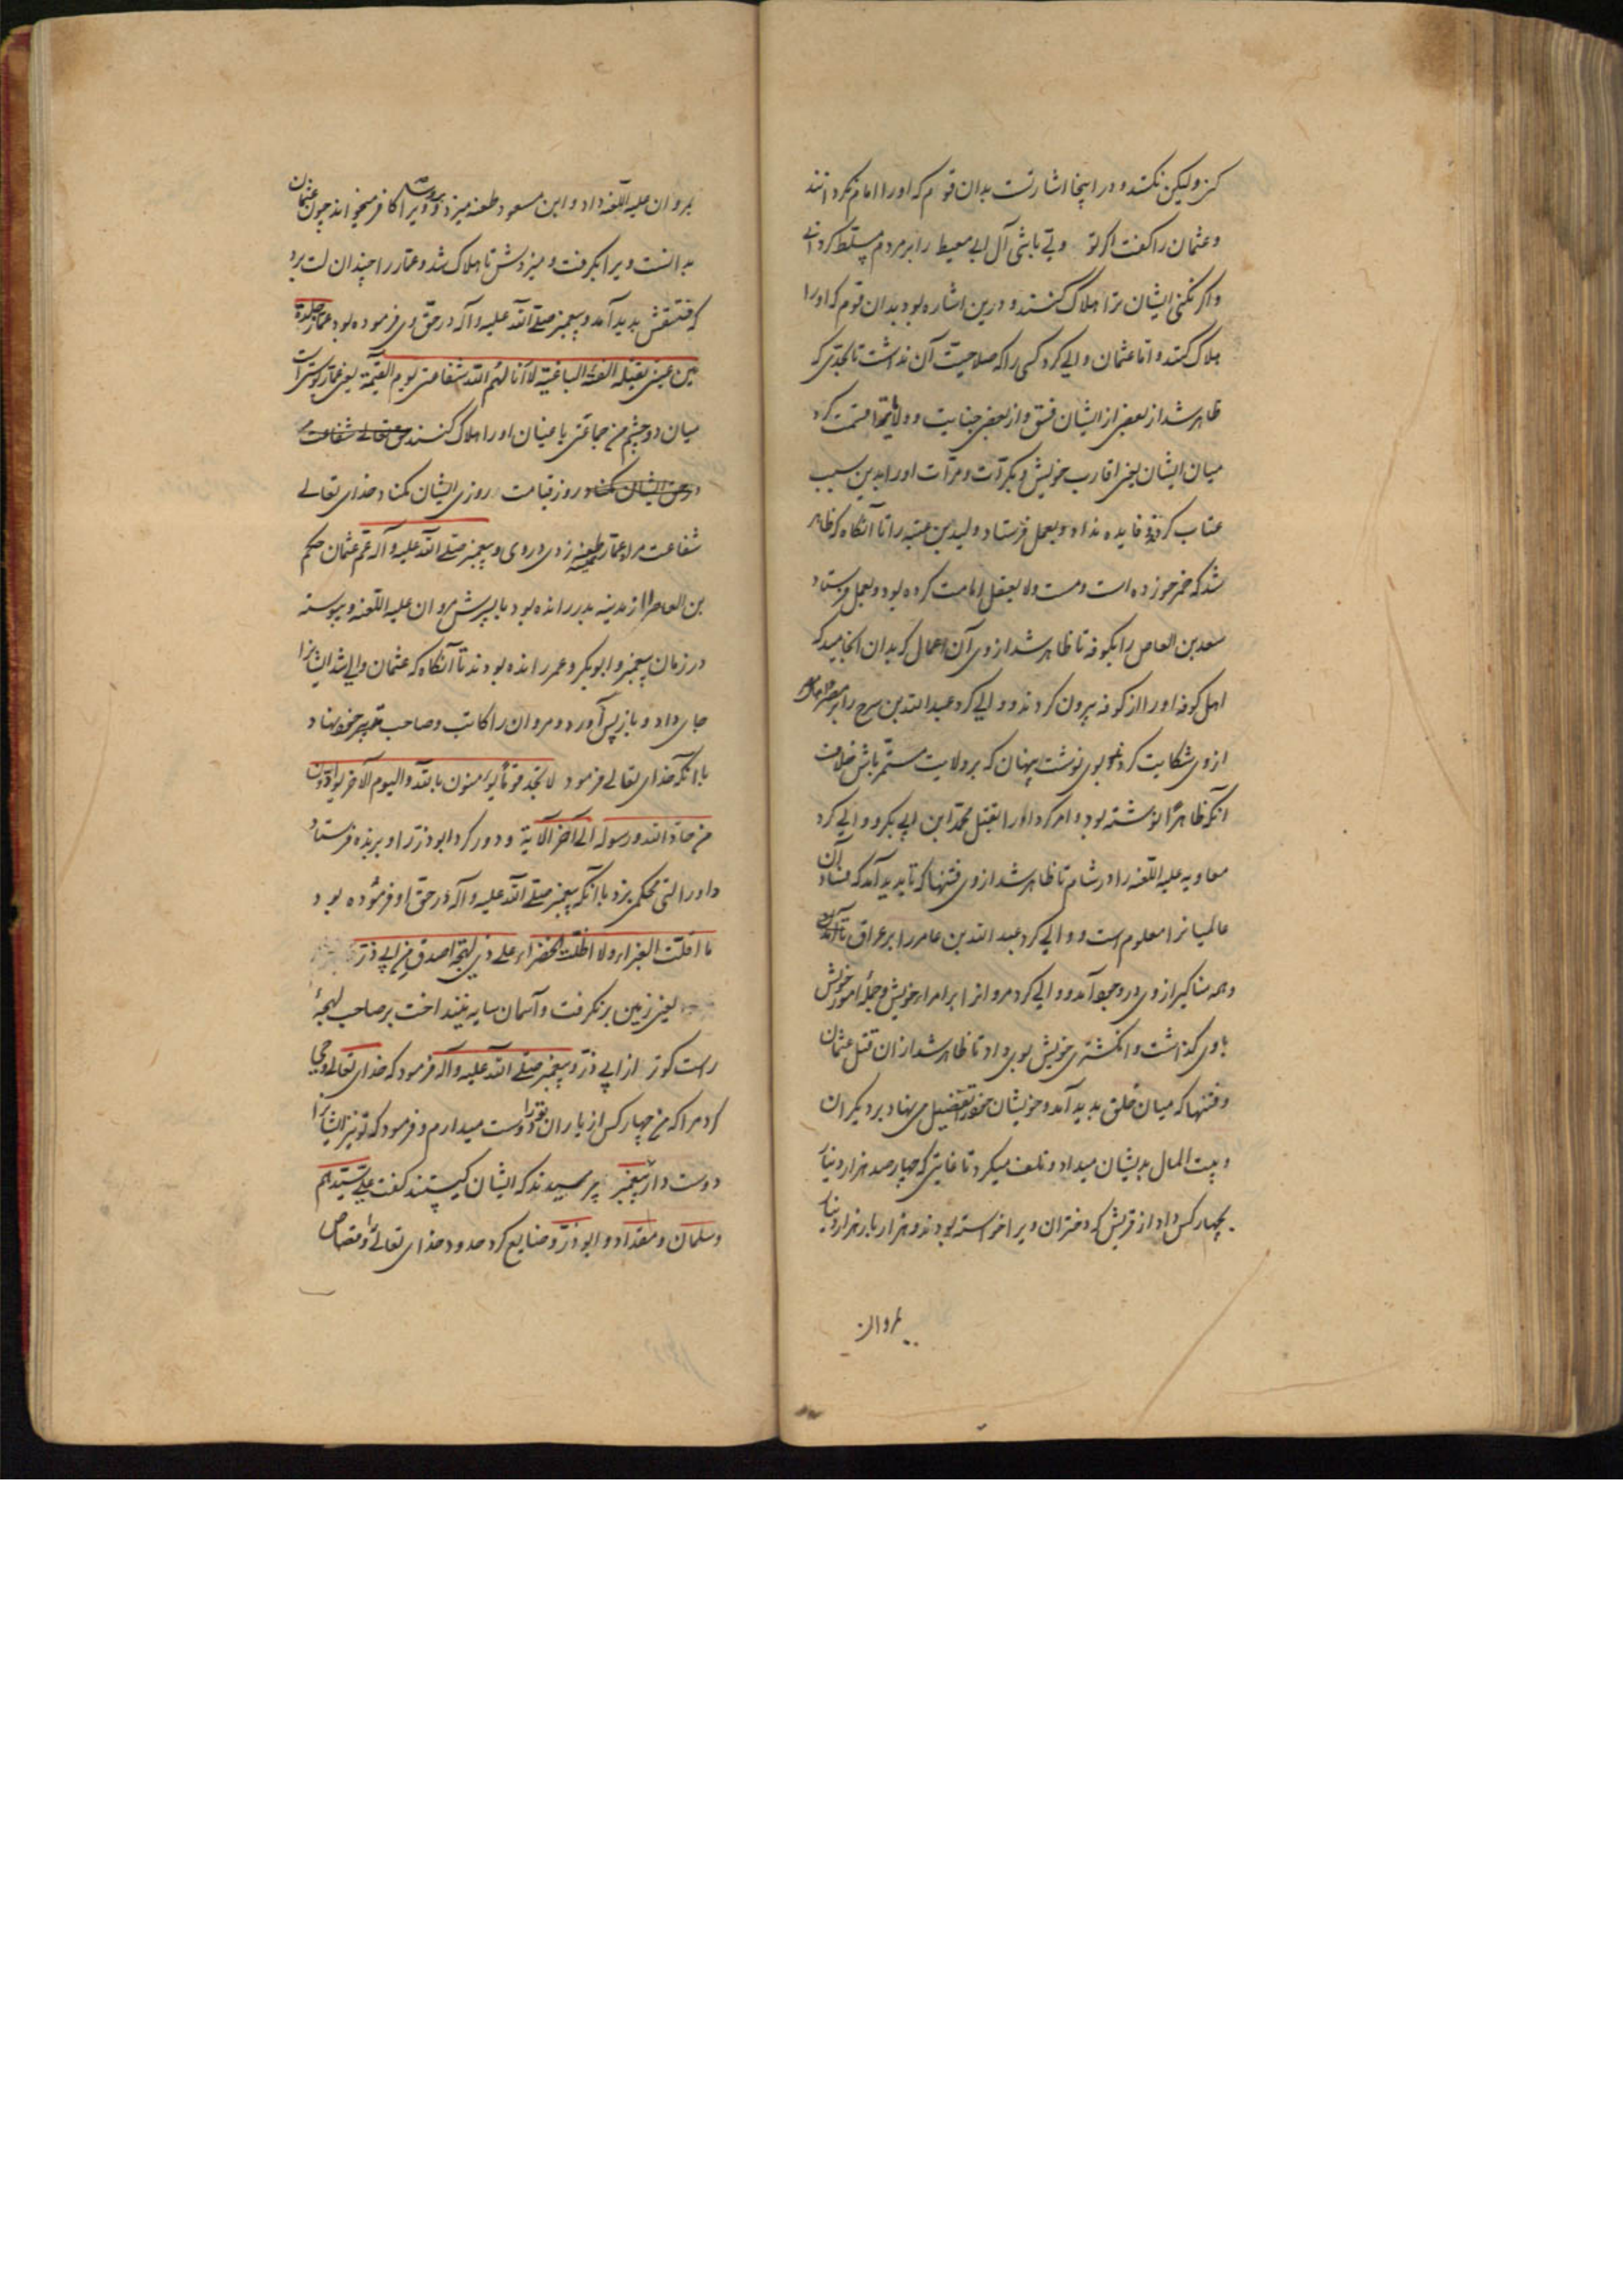 کن ولیکن نکشد و در اینجا اشارتست بدان قوم که او را امام کردانند
و عثمان را کفت اکر تو وتی باشی آل ابی معیط را بر مردم مسلط کردانی
واکر نکنی ایشان ترا هلاک کنند و درین اشاره بود بدان قوم که او را
هلاک کنند و اما عثمان والی کرد کسی را که صلاحیت آن نداشت تا بحدی که
ظاهر شد از بعضی از ایشان فسق و از بعضی جنایت و ولایتها قسمت کرد
میان ایشان یعنی اقارب خویش و بکرات و مرات او را بدین سبب
عتاب کردند فایده نداد و بعمل فرستاد ولید بن عتبه را تا آنکاه که ظاهر
شد که خمر خورده است و مست ولا یعقل امامت کرده بود و بعمل فرستاد
سعد بن العاص را بکوفه تا ظاهر شد از وی آن اعمال که بدان انجامید که
اهل کوفه او را از کوفه بیرون کردند و والی کرد عبد الله بن سرح را بر مصر
از وی شکایت کردند بوی نوشت پنهان که بر ولایت مستمر باش خلاف
آنکه ظاهرا نوشته بود و امر کرد او را بقتل محمد ابن ابی بکر و والی کرد
معاویه علیه اللعنه را در شام تا ظاهر شد از وی فتنها که تا پدید آمد که فساد آن
عالمیانرا معلوم است و والی کرد عبد الله بن عامر را بر عراق تا آنکه
وهمه مناکیر از وی در وجود آمد و والی کرد مروانرا بر امراء خویش و جملهٔ امور خویش
باوی کذاشت و انکشتری خویش بوی داد تا ظاهر شد ازان قتل عثمان
و فتنها که میان خلق پدید آمد و خویشان خود را تفضیل می نهاد بر دیکران
و بیت المال بدیشان میداد و تلف میکرد تا غایتی که چهار صد هزار دینار
بچهار کس داد از قریش که دختران ویرا خواسته بودند و هزار بار هزار دینار
بمروان
بمروان علیه اللعنه داد و ابن مسعود طعنه میزد و ویرا کافر میخواند چون عثمان
بدانست ویرا بکرفت و میزدش تا هلاک شد و عمار را چندان لت بزد
که فتقش پدید آمد و پیغمبر صلی الله علیه وآله در حق وی فرموده بود عمار جلدة
بین عینی تقتله الفئة الباغیة لا انالهم الله شفاعتی یوم القیمة یعنی عمار پوستی است
میان دو چشم من جماعتی باغیان او را هلاک کنند
روز قیامت روزی ایشان مکناد خدای تعالی
شفاعت مرا و عمار طعنه زدی در وی و پیغمبر صلی الله علیه وآله عم عثمان حکم
بن العاص را از مدینه بدر رانده بود با پسرش مروان علیه اللعنه و پیوسته
در زمان پیغمبر و ابوبکر و عمر رانده بودند تا آنکاه که عثمان والی شد ایشانرا
جای داد و باز پس آورد و مروان را کاتب و صاحب تدبیر خود نهاد
با آنکه خدای تعالی فرمود لا تجد قوما یؤمنون بالله والیوم الآخر یوادون
من حاد الله ورسوله الی آخر الآیة و دور کرد ابوذر را و بربذه فرستاد
و او را لتی محکم بزد با آنکه پیغمبر صلی الله علیه وآله در حق او فرموده بود
ما اقلت الغبراء ولا اظلت الخضراء علی ذی لهجة اصدق من ابی ذر
یعنی زمین برنکرفت و آسمان سایه نینداخت بر صاحب لهجهٔ
راست کوتر از ابی ذر و پیغمبر صلی الله علیه وآله فرمود که خدای تعالی وحی
کرد مرا که من چهار کس از یاران تو را دوست میدارم و فرمود که تو نیز ایشانرا
دوست دار پیغمبر را پرسیدند که ایشان کیستند کفت علی سیدهم
و سلمان و مقداد و ابوذر و ضایع کرد حدود خدای تعالی را و قصاص